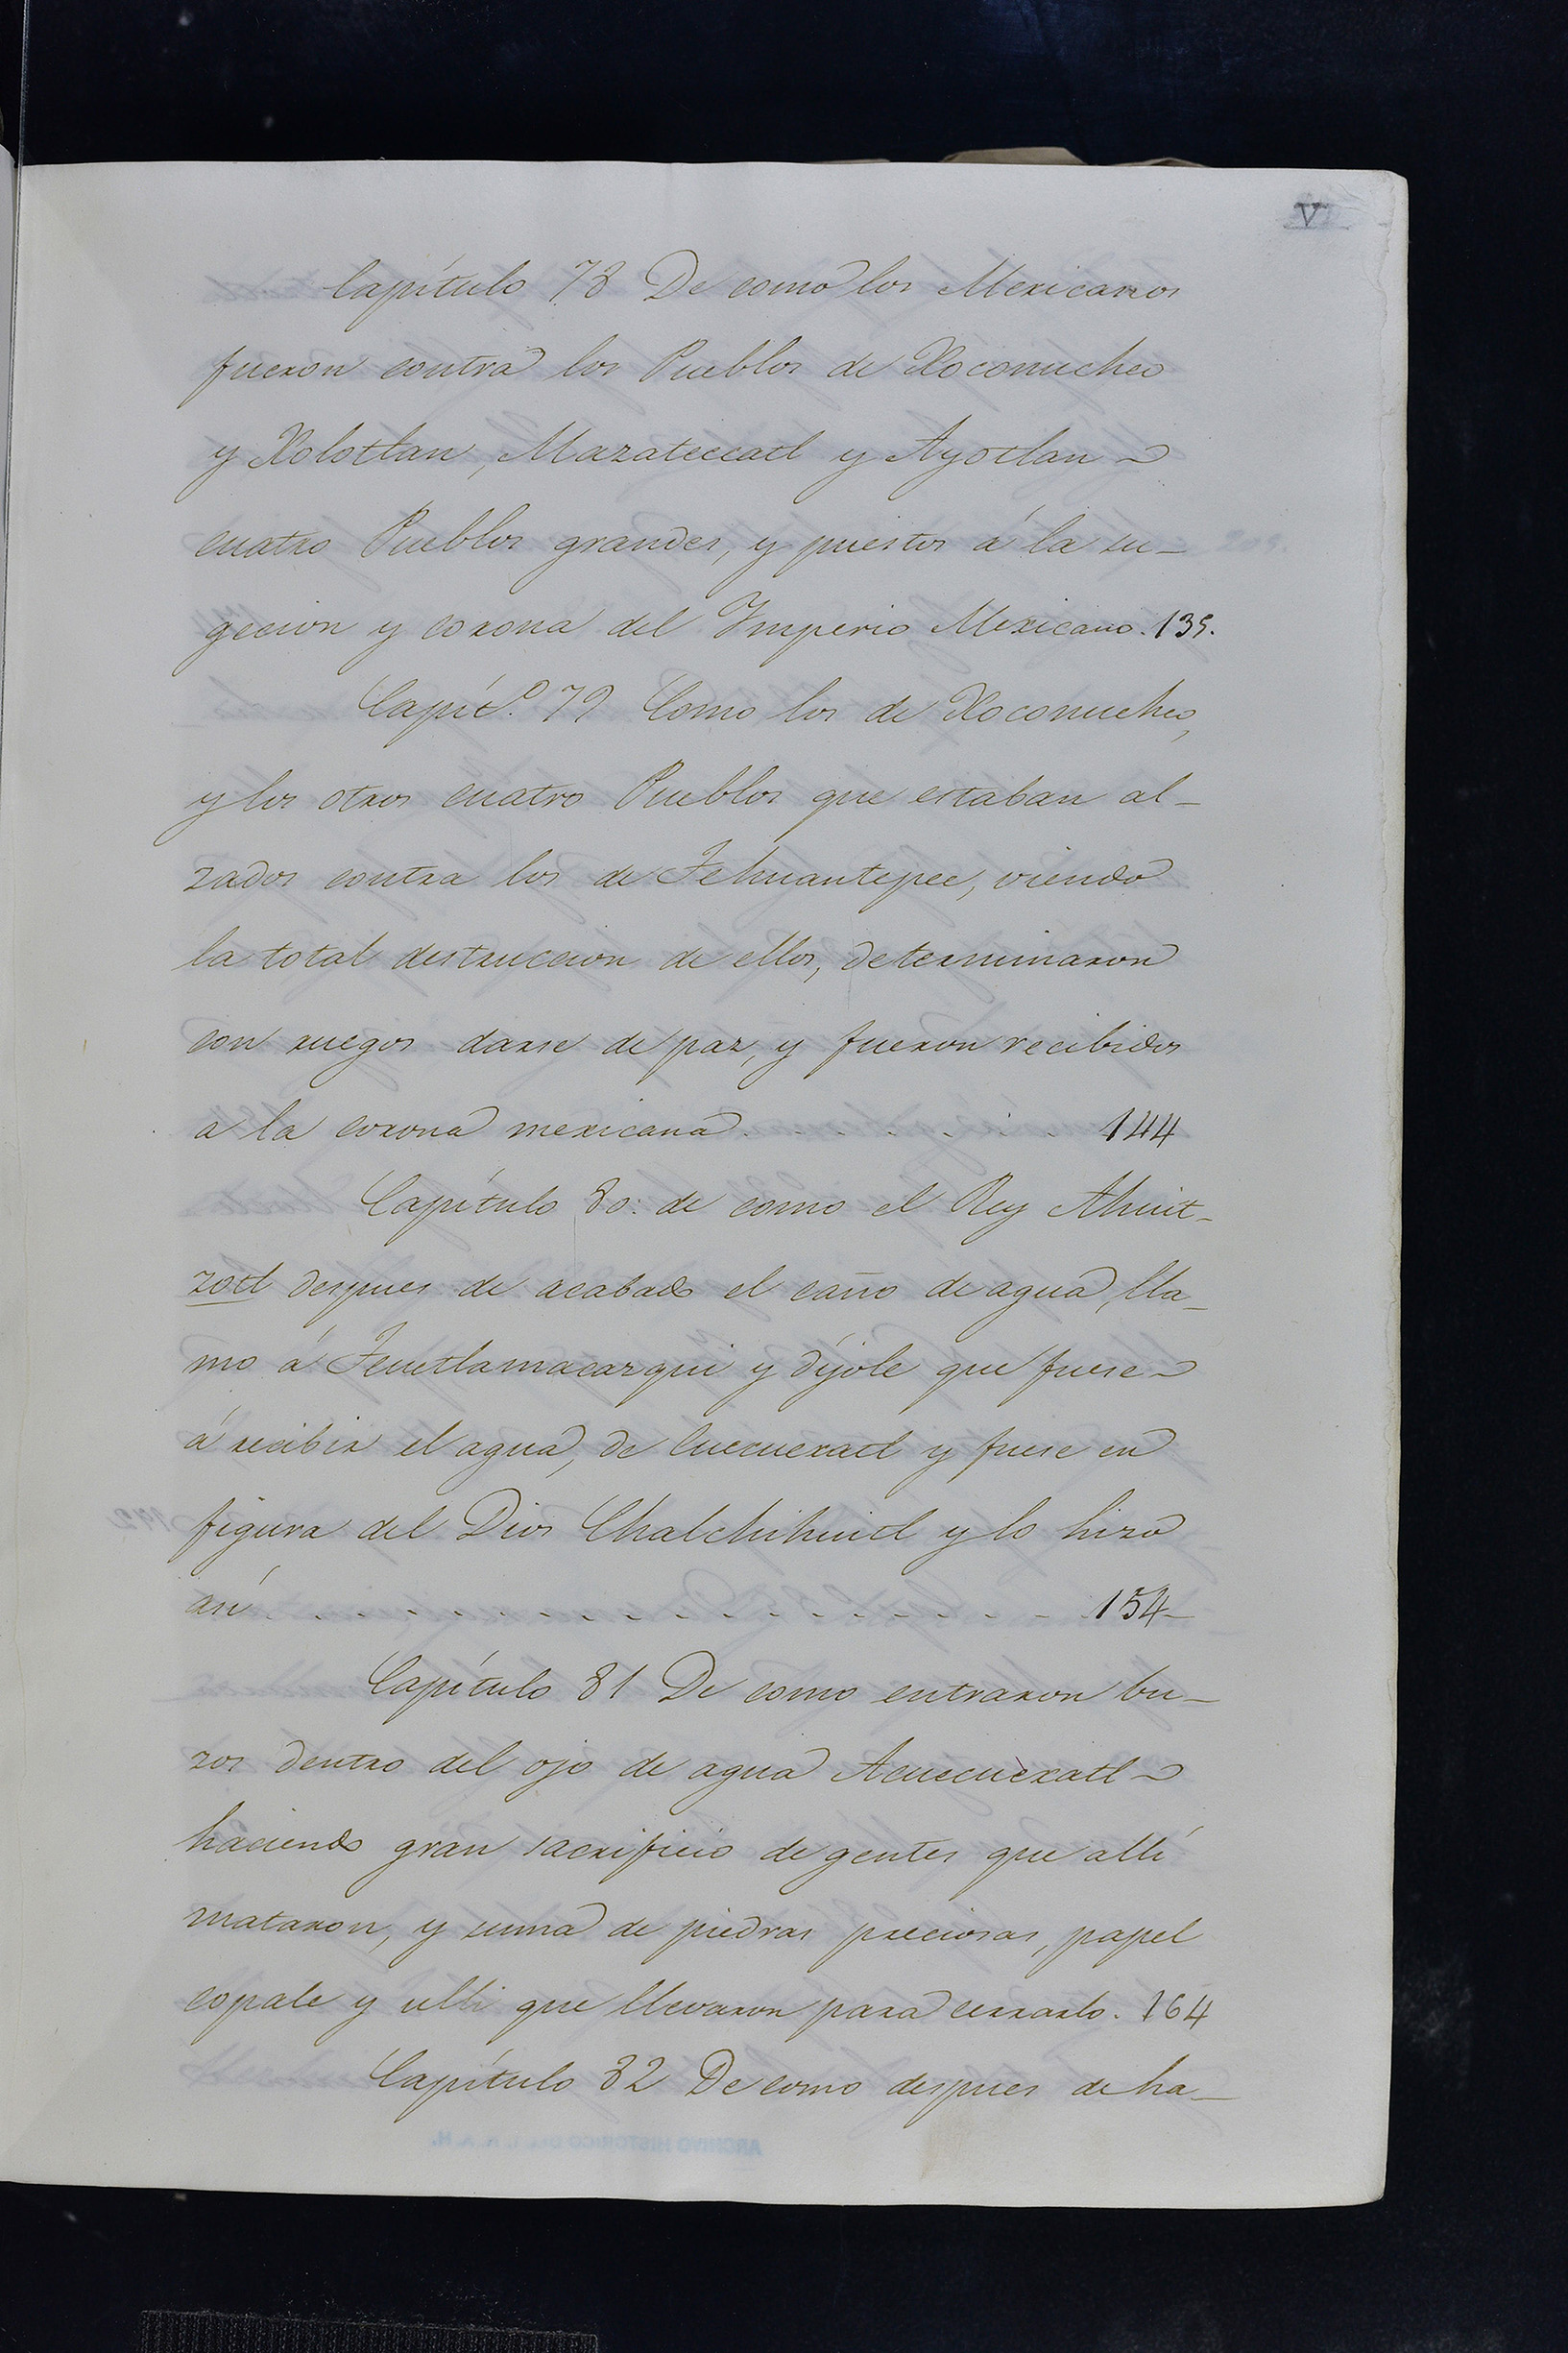 V
Capítulo 78 De como los Mexicanos
fueron contra los Pueblos de Xoconuchco
y Xolotlan, Mazateccatl y Ayotlan
cuatro Pueblos grandes, y puestos á la su-
geccion y corona del Imperio Mexicano. 135.
Capít.º 79 Como los de Xoconuchco,
y los otros cuatro Pueblos que estaban al-
zados contra los de Tehuantepec, viendo
la total destruccion de ellos, determinaron
con ruegos darse de paz, y fueron recibidos
a la corona mexicana . . . . . . . . 144
Capítulo 80: de como el Rey Ahuit-
zotl despues de acabado el caño de agua, lla-
mo á Teuctlamacazqui y díjole que fuese
á recibir el agua, de Cuecuexatl y fuese en
figura del Dios Chalchihuitl y lo hizo
así . . . . . . . . . . . . . . . . 154
Capítulo 81 De como entraron bu-
zos dentro del ojo de agua Acuecuexatl
haciendo gran sacrificio de gentes que allí
mataron, y suma de piedras preciosas, papel
copale y ulli que llevaron para cerrarlo. 164
Capítulo 82 De como despues de ha-